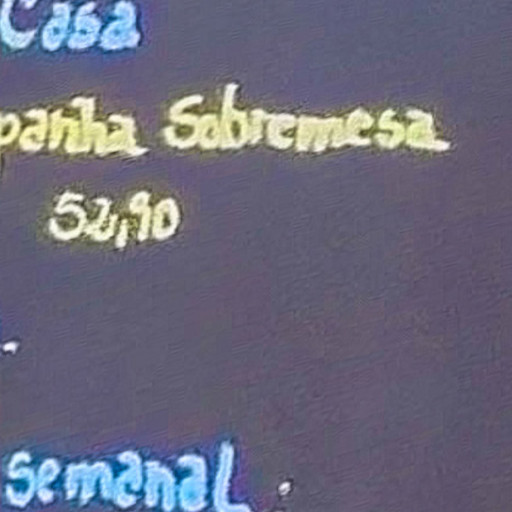 Casa
panha Sobremesa
52,90
semanal